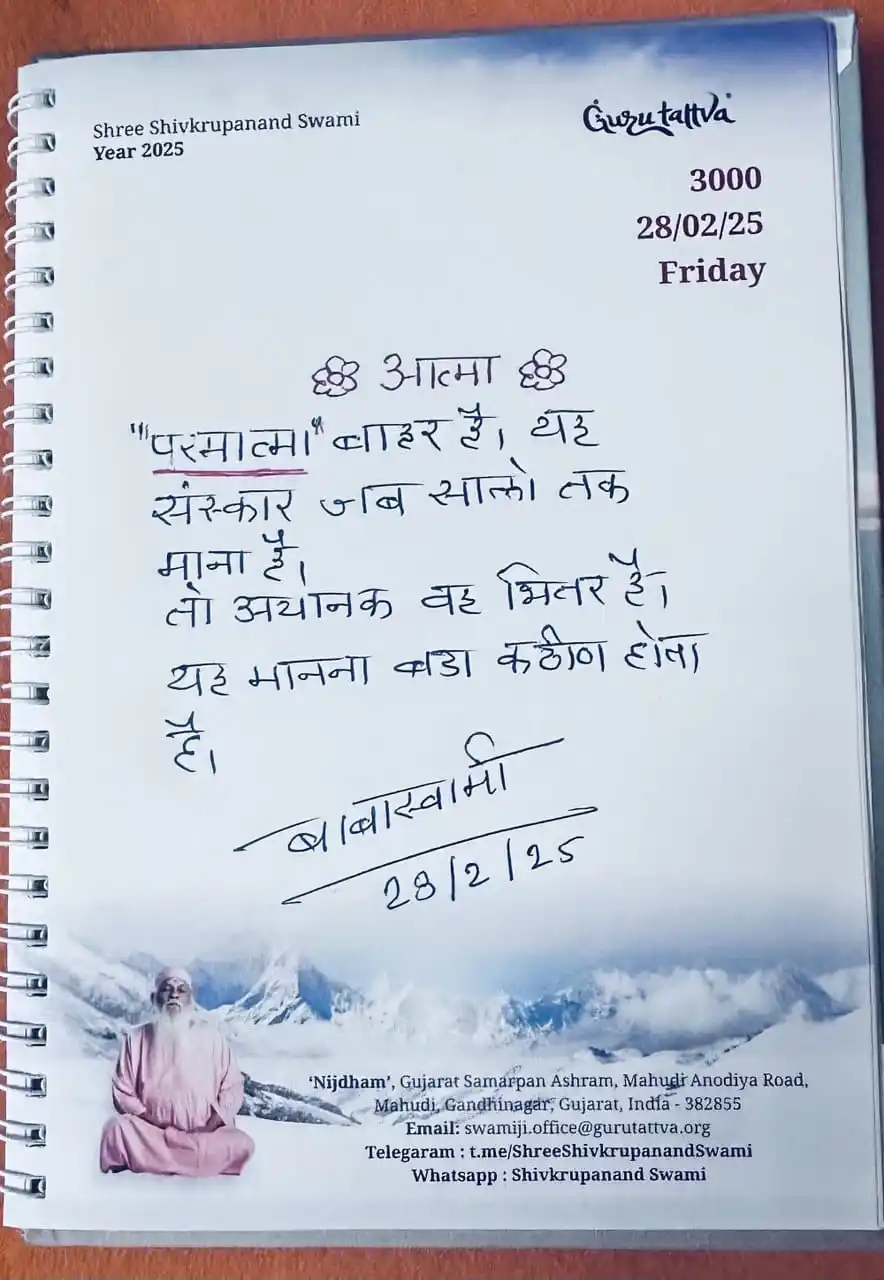 Shree Shivkrupanand Swami
Year 2025
Gurutattva
3000
28/02/25
Friday
आत्मा
"परमात्मा" बाहर है। यह
संस्कार जब सालो तक
माना है।
तो अचानक वह भितर है।
यह मानना बडा कठीण होता
है।
बाबास्वामी
28/2/25
'Nijdham', Gujarat Samarpan Ashram, Mahudi Anodiya Road,
Mahudi, Gandhinagar, Gujarat, India - 382855
Email: swamiji.office@gurutattva.org
Telegaram : t.me/ShreeShivkrupanandSwami
Whatsapp : Shivkrupanand Swami